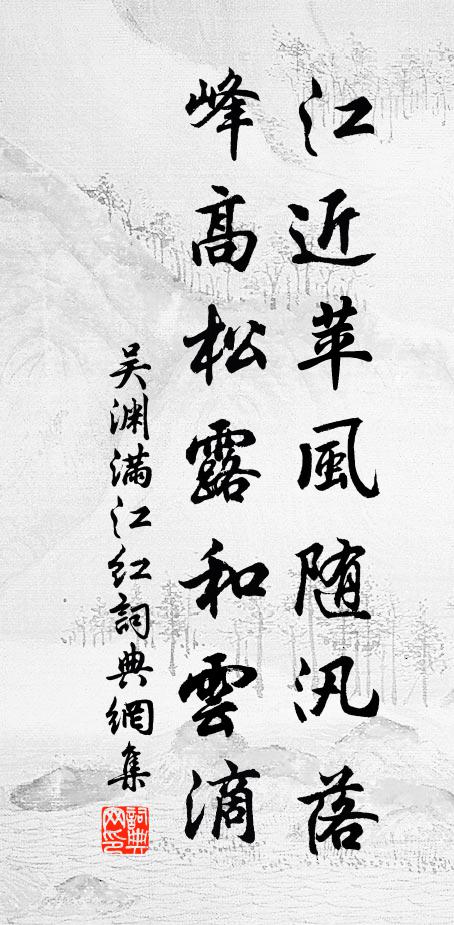 江近苹風随汛落
峰髙松露和雲滴
吴渊满江红詞典網集
詞典
网印